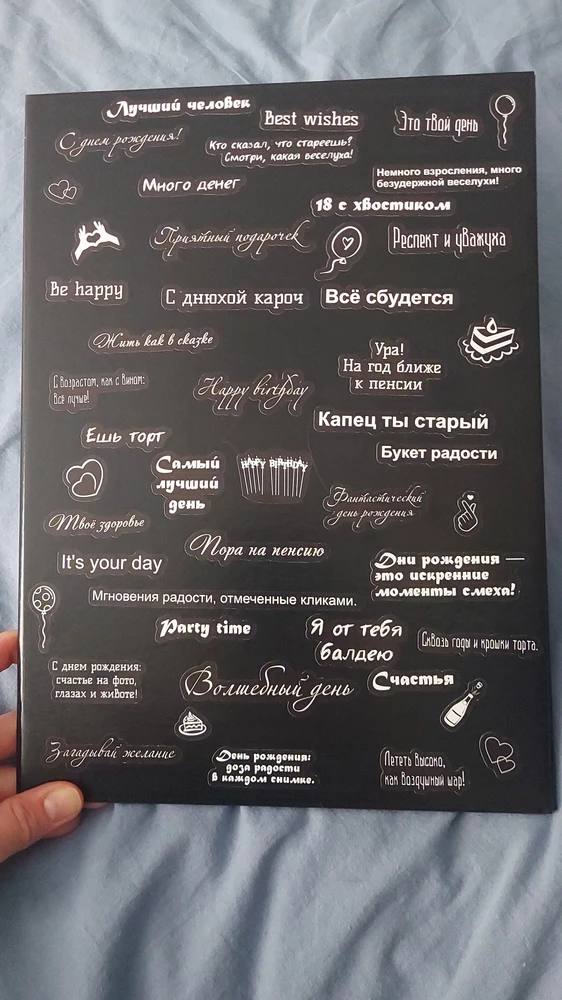 Лучший человек
Best wishes
Это твой день
С днем рождения!
Кто сказал, что стареешь?
Смотри, какая веселуха!
Много денег
Немного взросления, много
безудержной веселухи!
18 с хвостиком
Приятный подарочек
Респект и уважуха
Be happy
С днюхой кароч
Всё сбудется
Жить как в сказке
Ура!
На год ближе
к пенсии
С возрастом, как с вином:
всё лучше!
Happy birthday
Капец ты старый
Ешь торт
Букет радости
Самый
лучший
день
HAPPY BIRTHDAY
Фантастический
день рождения
Твоё здоровье
Пора на пенсию
It's your day
Дни рождения —
это искренние
моменты смеха!
Мгновения радости, отмеченные кликами.
Party time
Я от тебя
балдею
Сквозь годы и крошки торта.
С днем рождения:
счастье на фото,
глазах и животе!
Волшебный день
Счастья
Загадывай желание
День рождения:
доза радости
в каждом снимке.
Лететь высоко,
как воздушный шар!